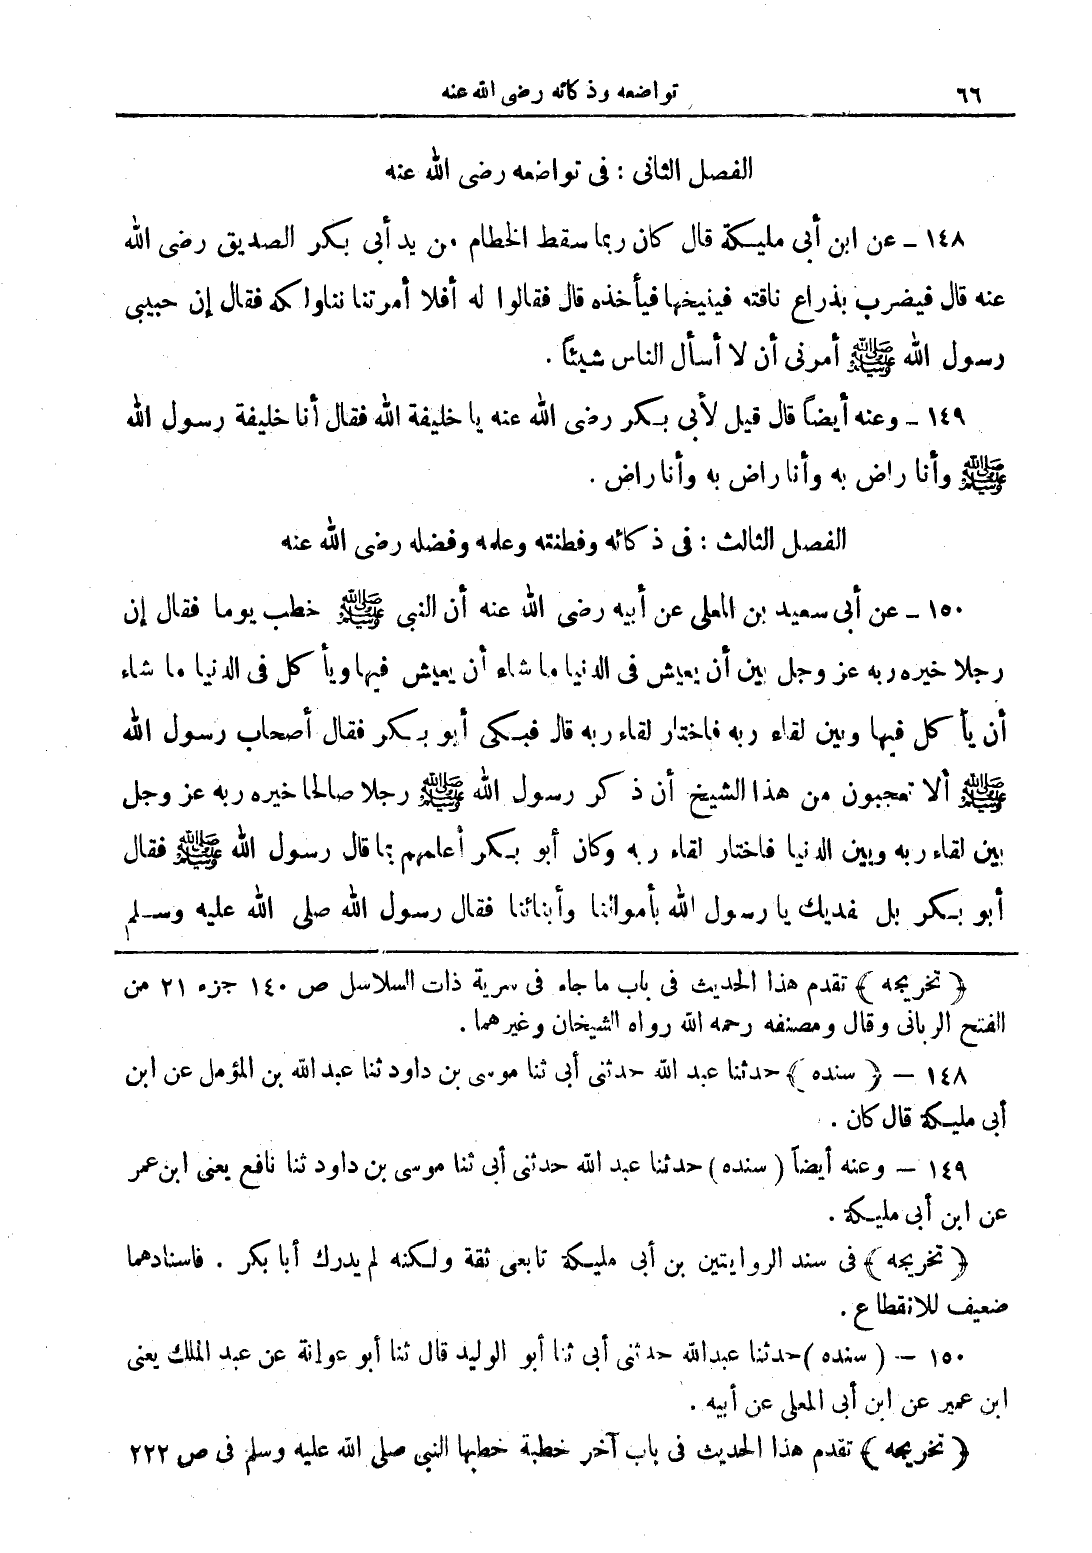 ٦٦
تواضعه وذكائه رضى الله عنه
الفصل الثانى : فى تواضعه رضى الله عنه
١٤٨ ـ عن ابن أبى مليكة قال كان ربما سقط الخطام من يد أبى بكر الصديق رضى الله
عنه قال فيضرب بذراع ناقته فينيخها فيأخذه قال فقالوا له أفلا أمرتنا نناولكه فقال إن حبيبى
رسول الله ﷺ أمرنى أن لا أسأل الناس شيئاً .
١٤٩ ـ وعنه أيضاً قال قيل لأبى بكر رضى الله عنه يا خليفة الله فقال أنا خليفة رسول الله
ﷺ وأنا راض به وأنا راض به وأنا راض .
الفصل الثالث : فى ذكائه وفطنته وعلمه وفضله رضى الله عنه
١٥٠ ـ عن أبى سعيد بن المعلى عن أبيه رضى الله عنه أن النبى ﷺ خطب يوما فقال إن
رجلا خيره ربه عز وجل بين أن يعيش فى الدنيا ما شاء أن يعيش فيها ويأكل فى الدنيا ما شاء
أن يأكل فيها وبين لقاء ربه فاختار لقاء ربه قال فبكى أبو بكر فقال أصحاب رسول الله
ﷺ ألا تعجبون من هذا الشيخ أن ذكر رسول الله ﷺ رجلا صالحا خيره ربه عز وجل
بين لقاء ربه وبين الدنيا فاختار لقاء ربه وكان أبو بكر أعلمهم بما قال رسول الله ﷺ فقال
أبو بكر بل نفديك يا رسول الله بأموالنا وأبنائنا فقال رسول الله صلى الله عليه وسلم
﴿ تخريجه ﴾ تقدم هذا الحديث فى باب ما جاء فى سرية ذات السلاسل ص ١٤٠ جزء ٢١ من
الفتح الربانى وقال ومصنفه رحمه الله رواه الشيخان وغيرهما .
١٤٨ — ﴿ سنده ﴾ حدثنا عبد الله حدثنى أبى ثنا موسى بن داود ثنا عبد الله بن المؤمل عن ابن
أبى مليكة قال كان .
١٤٩ — وعنه أيضاً ( سنده ) حدثنا عبد الله حدثنى أبى ثنا موسى بن داود ثنا نافع يعنى ابن عمر
عن ابن أبى مليكة .
﴿ تخريجه ﴾ فى سند الروايتين بن أبى مليكة تابعى ثقة ولكنه لم يدرك أبا بكر . فاسنادهما
ضعيف للانقطاع .
١٥٠ — ( سنده ) حدثنا عبدالله حدثنى أبى ثنا أبو الوليد قال ثنا أبو عوانة عن عبد الملك يعنى
ابن عمير عن ابن أبى المعلى عن أبيه .
﴿ تخريجه ﴾ تقدم هذا الحديث فى باب آخر خطبة خطبها النبي صلى الله عليه وسلم فى ص ٢٢٢